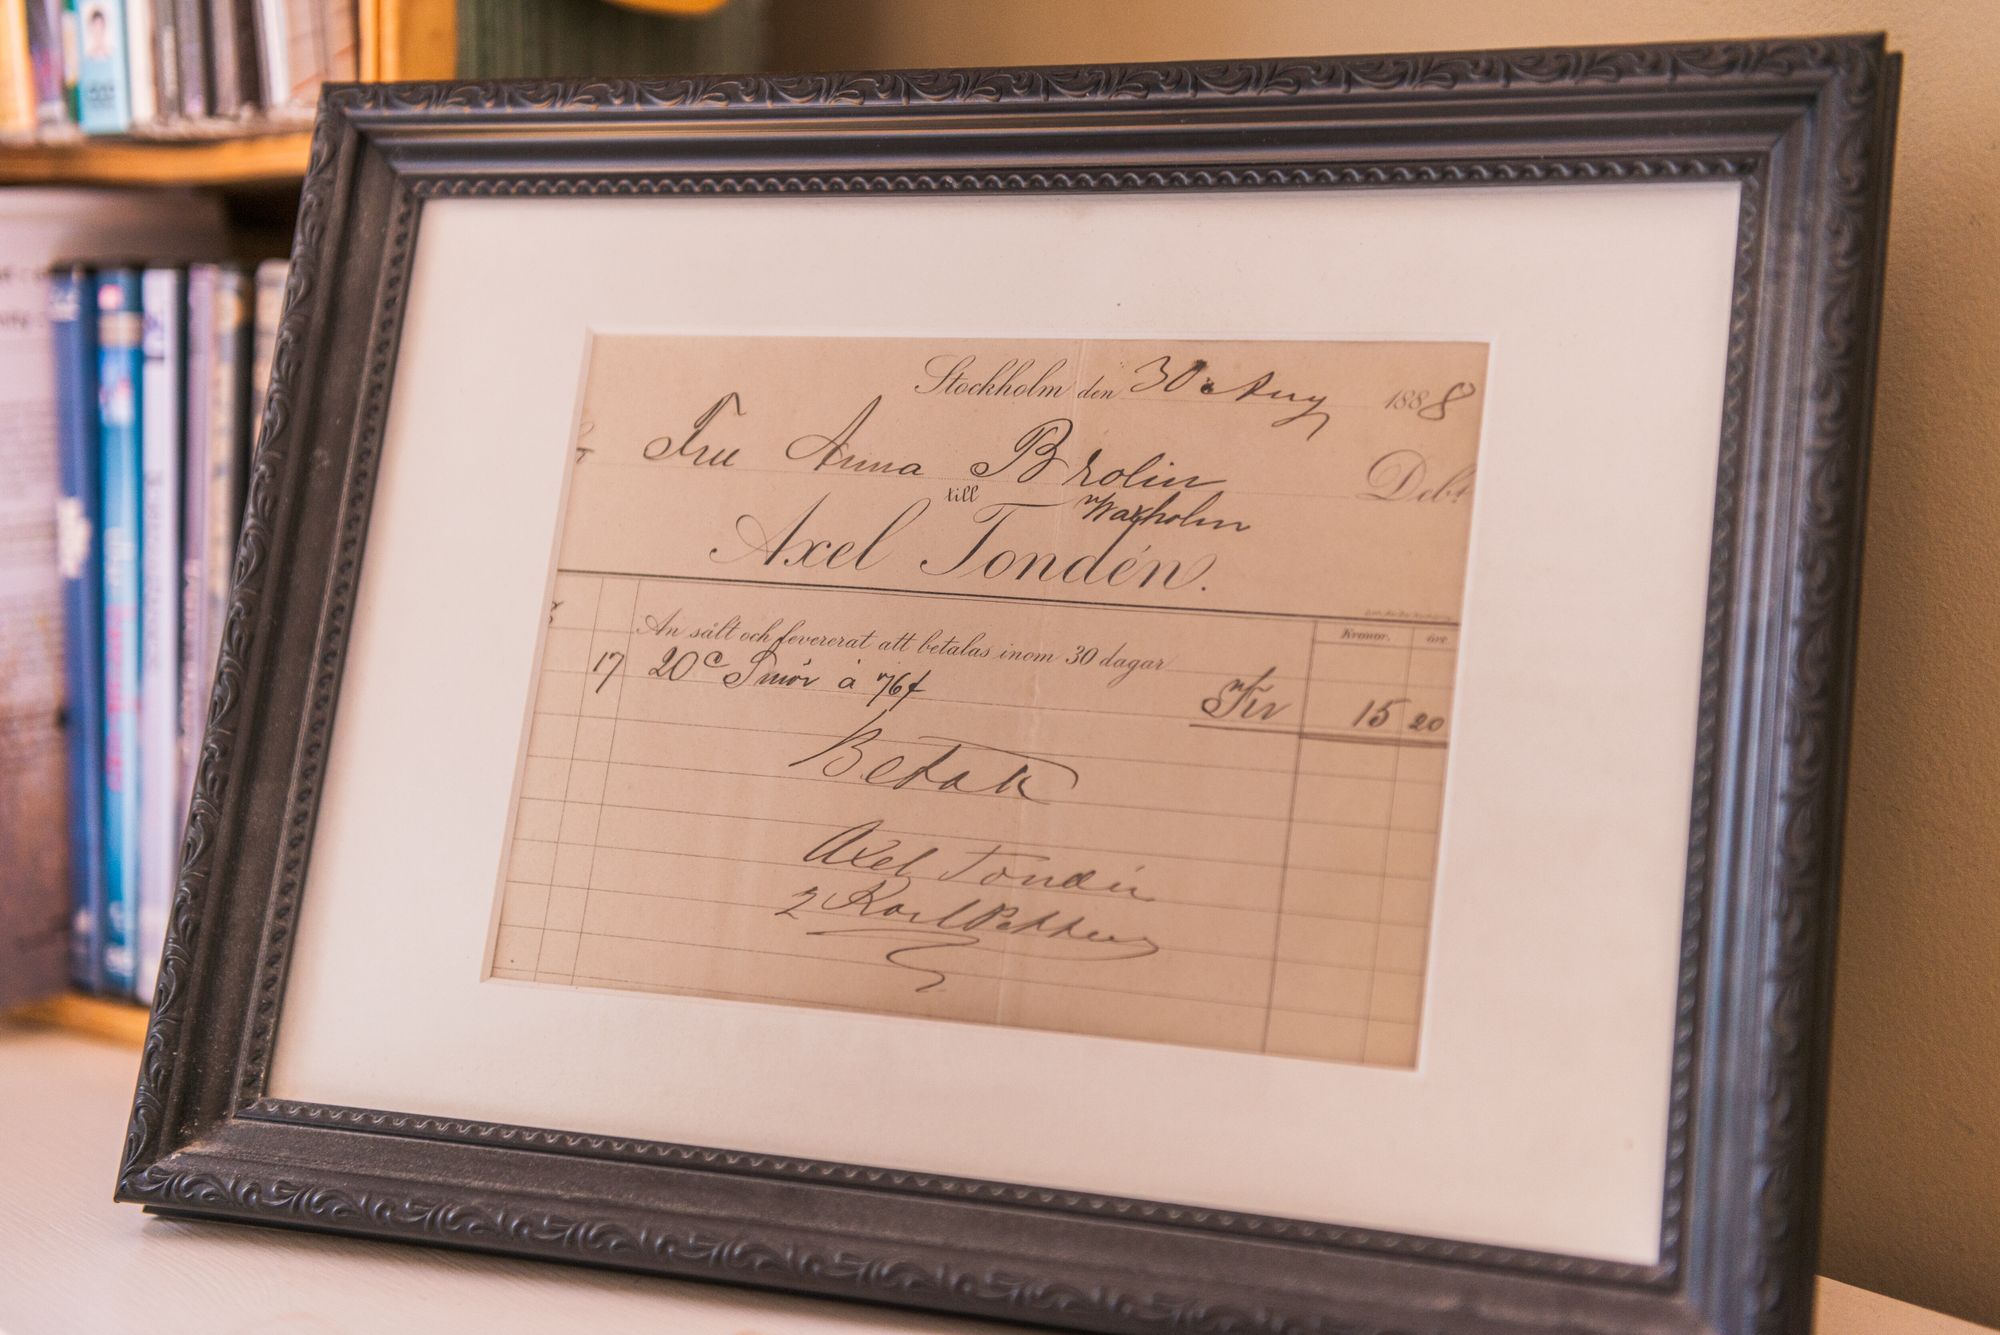 Stockholm den 30 Aug 1888
Fru Anna Brolin Debt
till Waxholm
Axel Tondén.
An sålt och levererat att betalas inom 30 dagar Kronor. öre
17 20 Smör à 76 Kr 15 20
Betalt
Axel Tondén
Karl